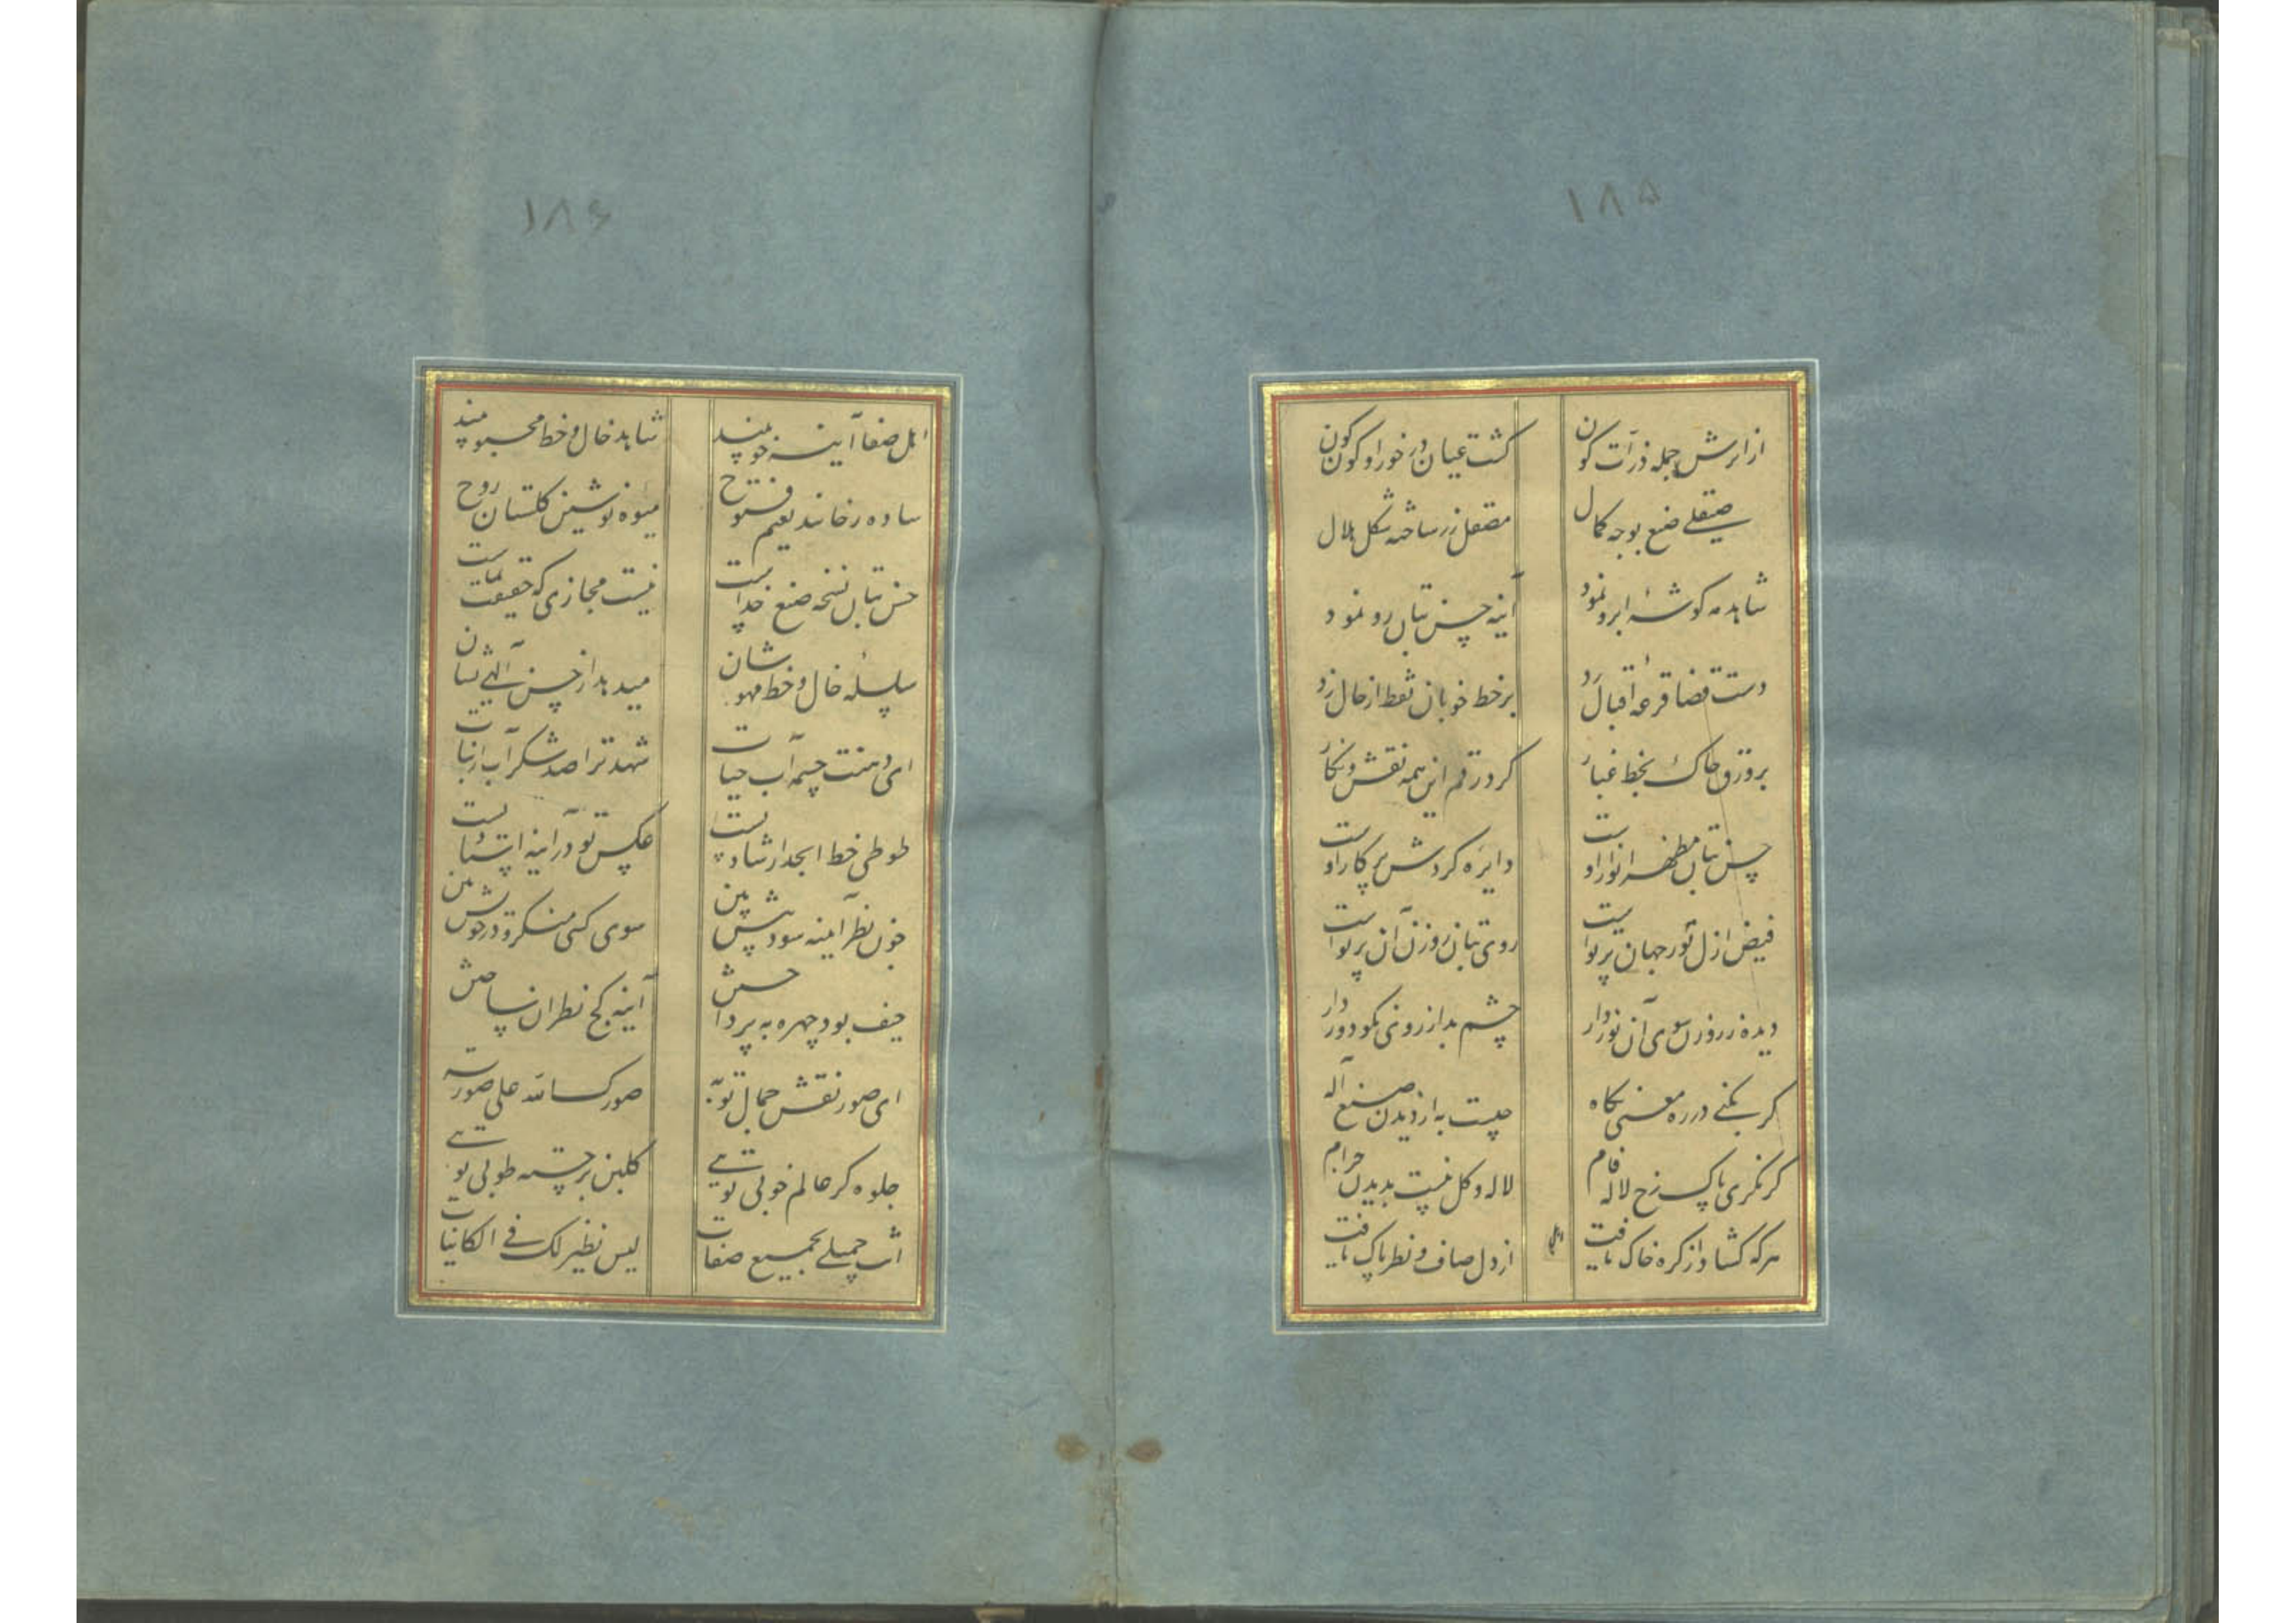 ۱۸۵
از اثرش جمله ذرات کون
گشت عیان در خور او کون کون
صیقلی صنع بوجه کمال
مصقل زر ساخته شکل هلال
شاهد مه گوشهٔ ابرو نمود
آینه حسن بتان رو نمود
دست قضا قرعهٔ اقبال زد
بر خط خوبان نقط از خال زد
بر ورق خاک بخط غبار
کرد رقم این همه نقش و نگار
حسن بتان مظهر انوار اوست
دایره گردش پرکار اوست
فیض ازل نور جهان پرتو است
روی بتان روزن آن پرتو است
دیده ز روزن سوی آن نور دار
چشم بد از روی نکو دور دار
گر بکنی در ره معنی نگاه
چیست به از دیدن صنع آله
گر نگری پاک رخ لاله فام
لاله و گل نیست بدیدن حرام
هر که گشاد از گره خاک یافت
از دل صاف و نظر پاک یافت
۱۸۶
اهل صفا آینهٔ خوبیند
شاهد خال و خط محبوبیند
ساده رخانند نعیم فتوح
میوه نوشین گلستان روح
حسن بتان نسخه صنع خداست
نیست مجازی که حقیقت نماست
سلسله خال و خط مهوشان
میدهد از حسن آلهی نشان
ای دهنت چشمه آب حیات
شهد ترا صد شکر آب از نبات
طوطی خط ابجد ارشاد تست
عکس تو در آینه استاد تست
چون نظر آینه سودت پیش بین
سوی کسی منگر و در خویش بین
حیف بود چهره به پرداختنش
آینه کج نظران ساختنش
ای صور نقش جمال تو به
صورک الله علی صورته
جلوه گر عالم خوبی توئی
گلبن برجسته طوبی توئی
انت جمیل بجمیع صفات
لیس نظیر لک فی الکاینات